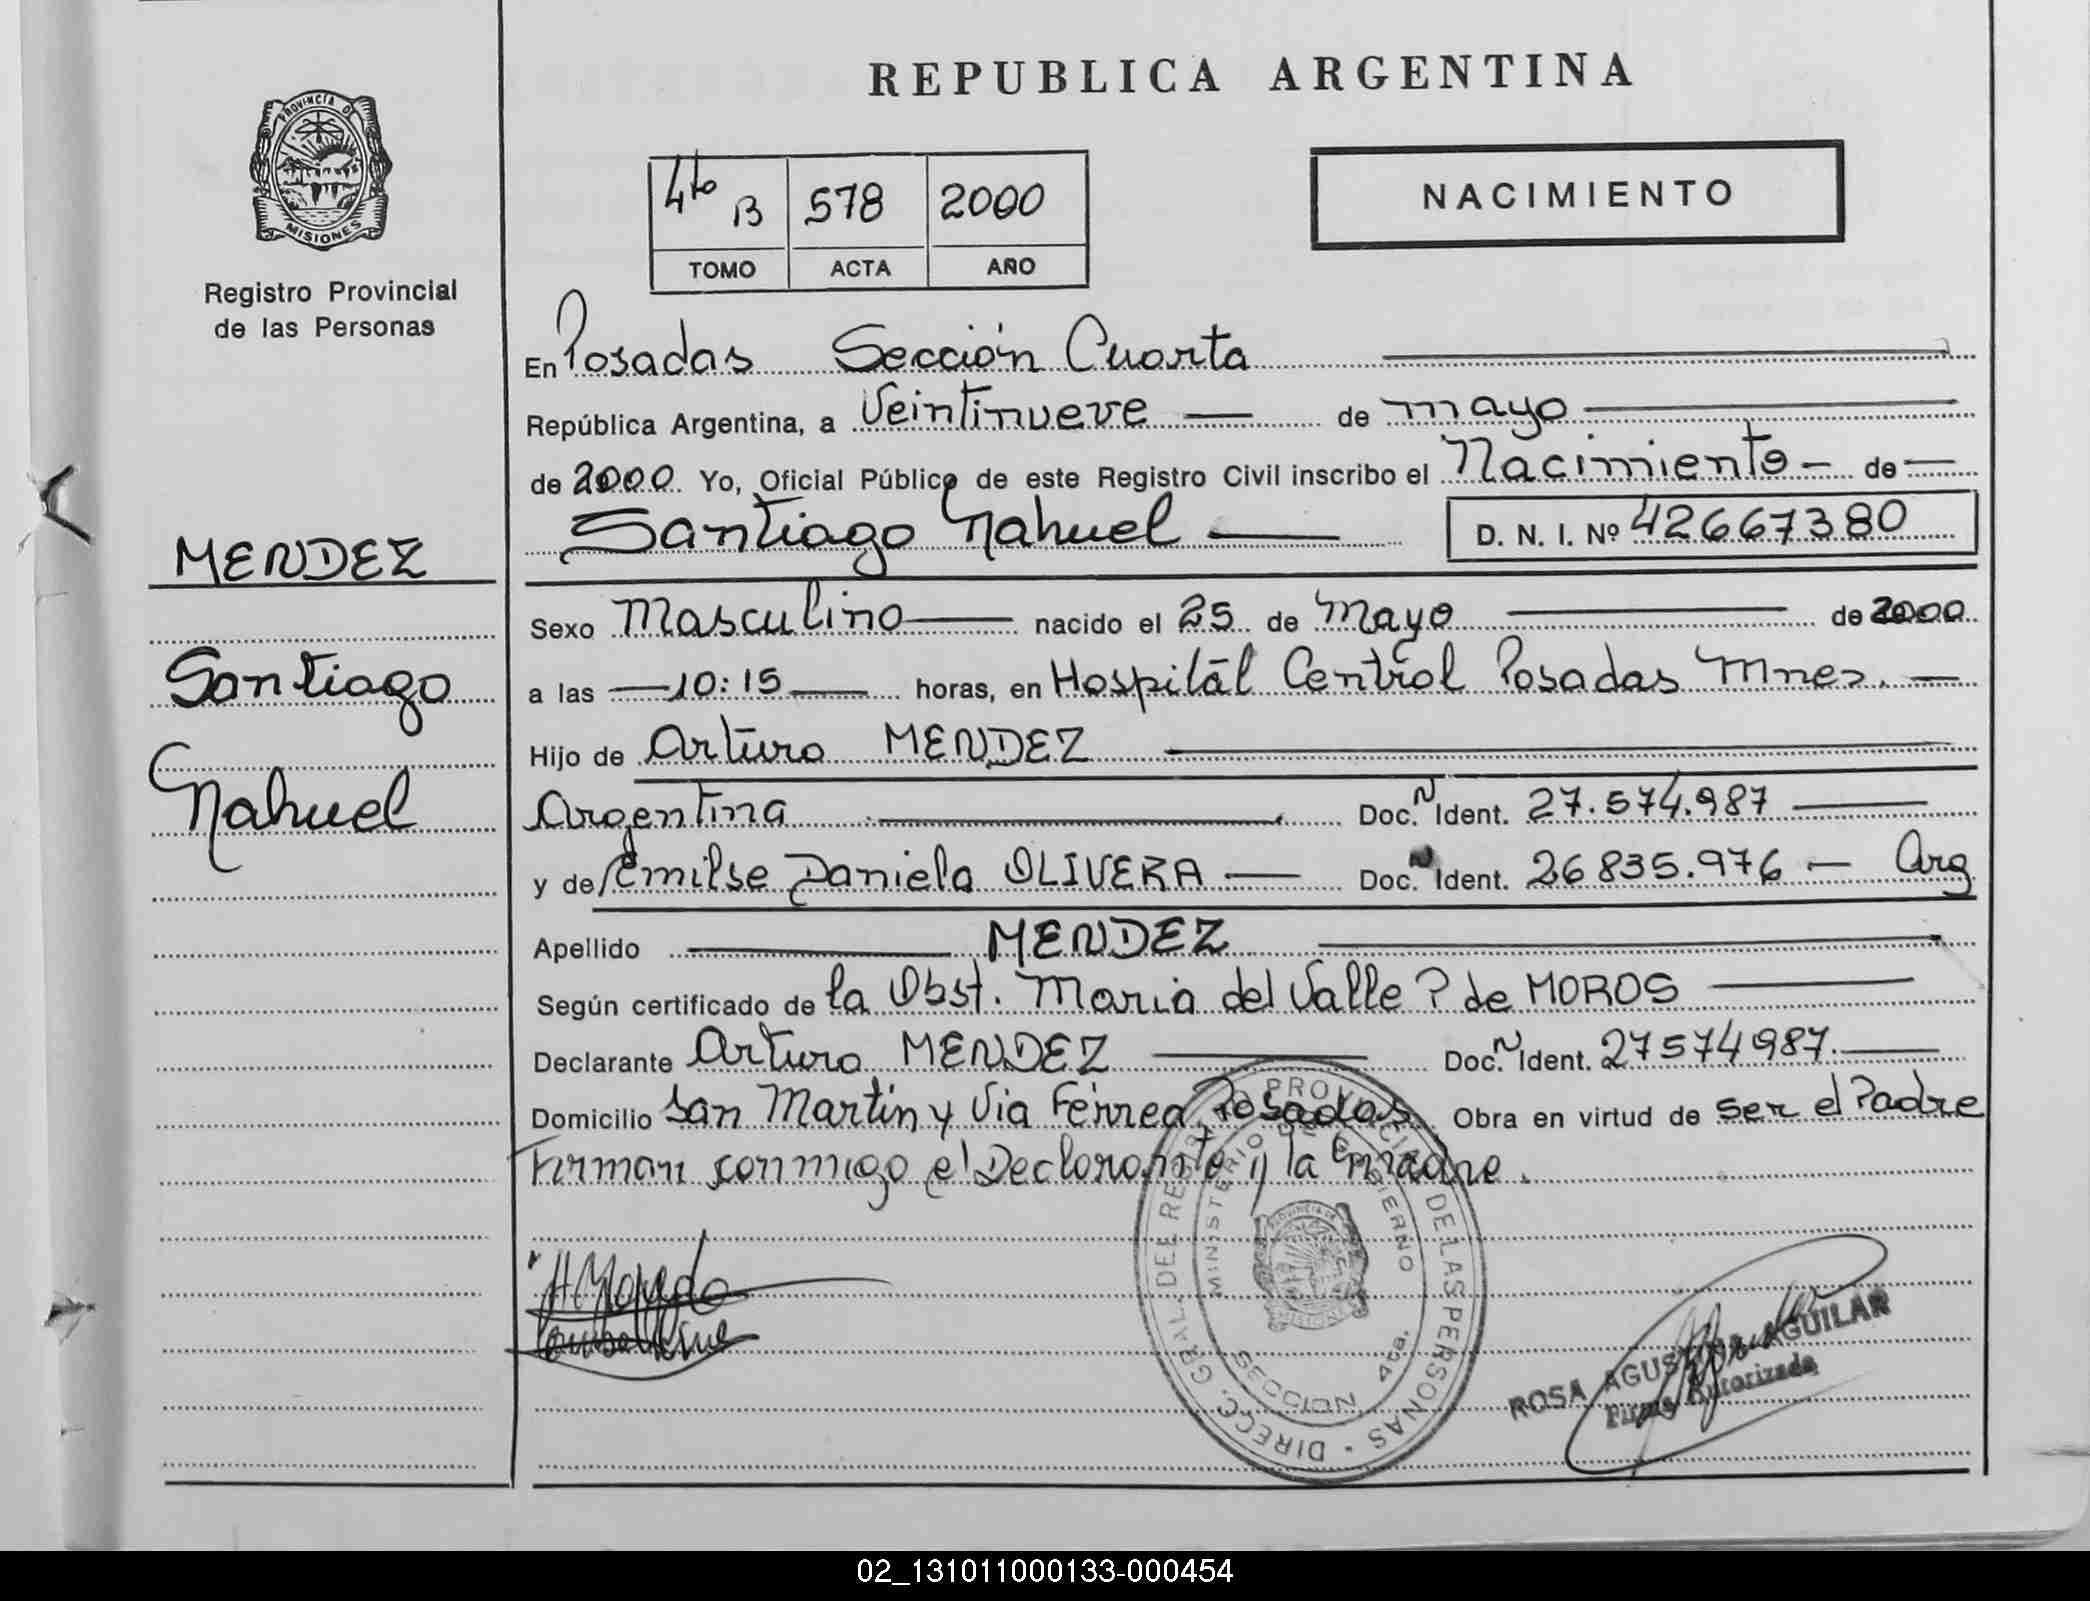 REPUBLICA ARGENTINA
PROVINCIA DE
MISIONES
Registro Provincial
de las Personas
4to B 578 2000
TOMO ACTA AÑO
NACIMIENTO
En Posadas Sección Cuarta
República Argentina, a Veintinueve de mayo
de 2000 Yo, Oficial Público de este Registro Civil inscribo el Nacimiento de
Santiago Nahuel D. N. I. Nº 42667380
MENDEZ
Santiago
Nahuel
Sexo Masculino nacido el 25 de Mayo de 2000
a las 10:15 horas, en Hospital Central Posadas Mnes.
Hijo de Arturo MENDEZ
Argentina Doc. N Ident. 27.574.987
y de Emilse Daniela OLIVERA Doc. N Ident. 26835.976 Arg
Apellido MENDEZ
Según certificado de la Obst. Maria del Valle P de MOROS
Declarante Arturo MENDEZ Doc. N Ident. 27574987.
Domicilio San Martín y Via Férrea Posadas Obra en virtud de ser el Padre
Firman conmigo el Declarante y la madre.
DIRECC. GRAL. DEL REG. PROVINCIAL DE LAS PERSONAS
MINISTERIO DE GOBIERNO
SECCION 4ta.
ROSA AGUSTINA AGUILAR
Firma Autorizada
02_131011000133-000454